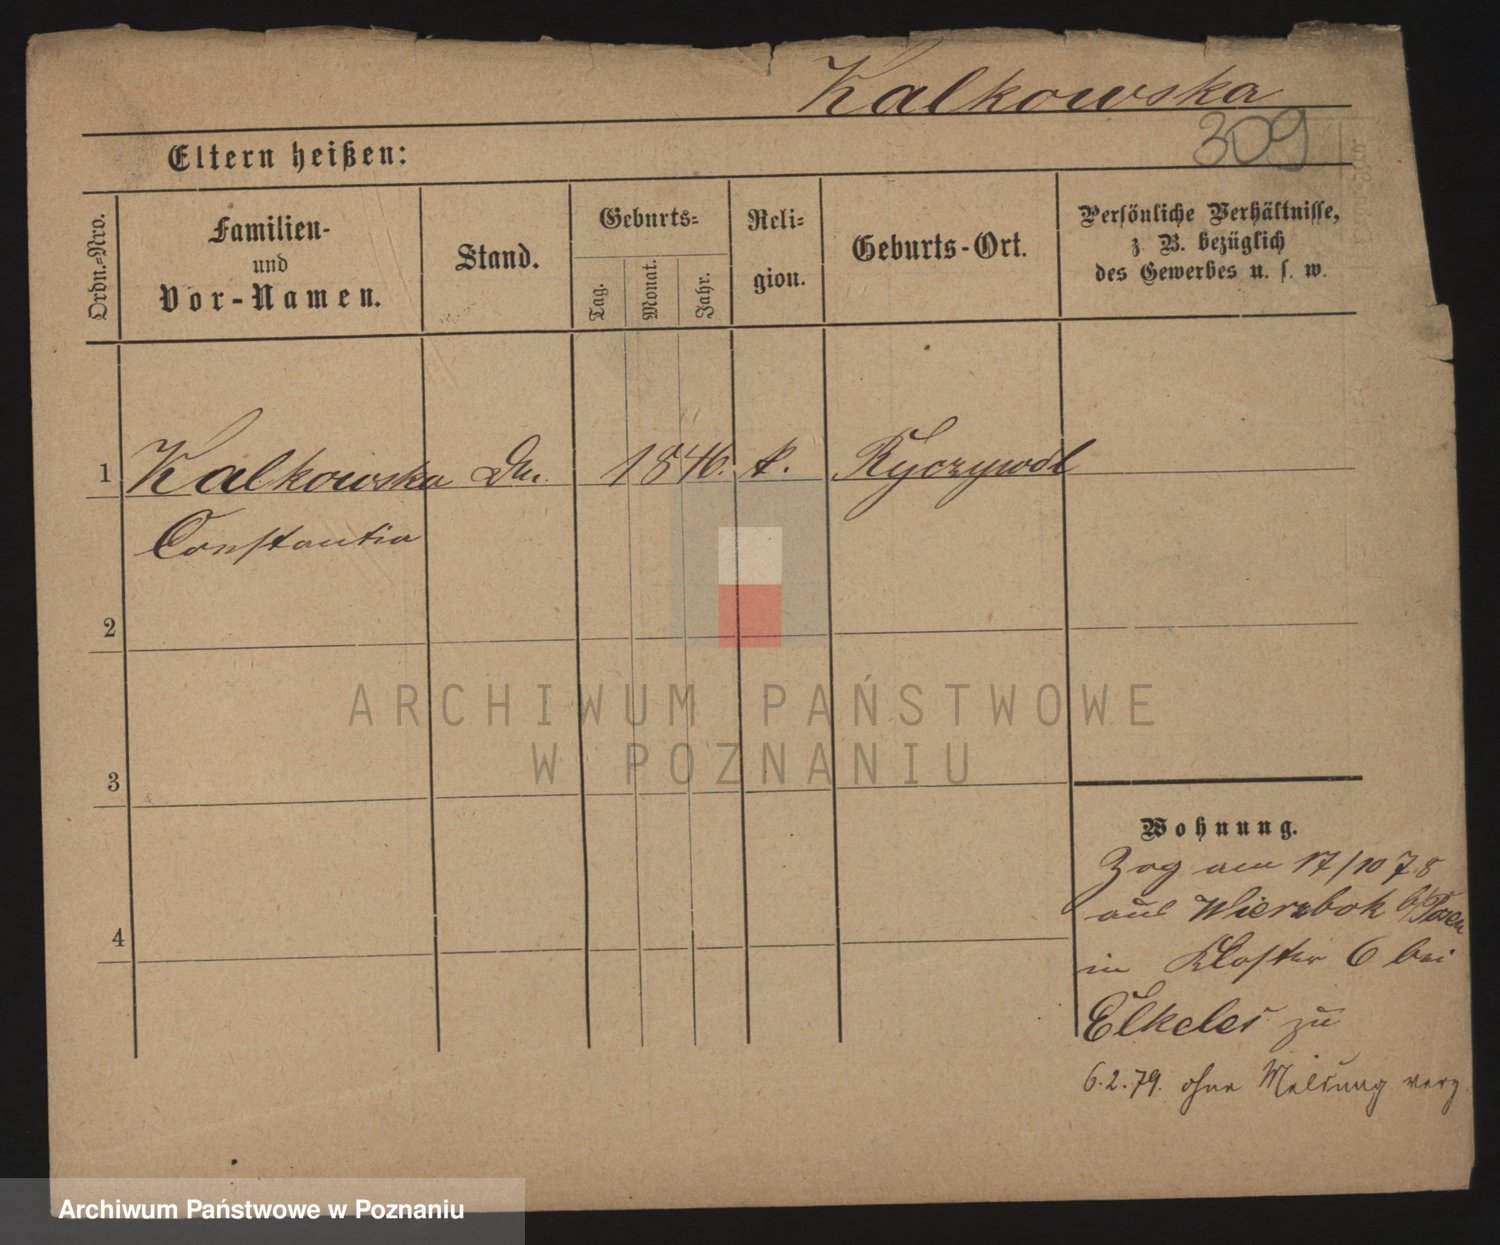 Kalkowska
309
Eltern heißen:
Ordn.-Nro.
Familien-
und
Vor-Namen.
Stand.
Geburts-
Tag.
Monat.
Jahr.
Reli-
gion.
Geburts-Ort.
Persönliche Verhältnisse,
z. B. bezüglich
des Gewerbes u. s. w.
1 Kalkowska 1846. k. Ryczywol
Constantia
2
3
4
Wohnung.
Zog am 17/10 78
aus Wierzbok b/Posen
in Kloster 6 bei
Elkeles zu
6.2.79. ohne Meldung verz
ARCHIWUM PAŃSTWOWE
W POZNANIU
Archiwum Państwowe w Poznaniu